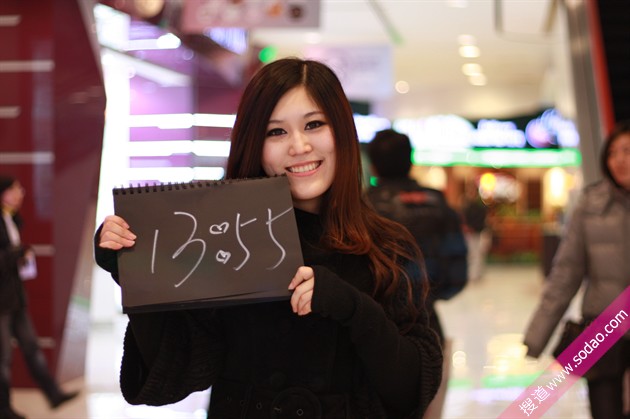 13:55
搜道 www.sodao.com